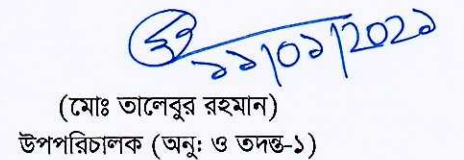 ১১/০১/২০২১
(মোঃ তালেবুর রহমান)
উপপরিচালক (অনু: ও তদন্ত-১)